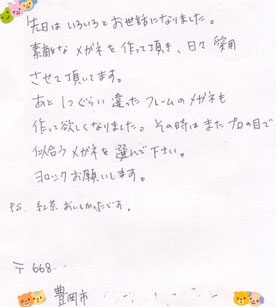 先日はいろいろとお世話になりました。
素敵なメガネを作って頂き、日々愛用
させて頂いてます。
あと1つぐらい違ったフレームのメガネも
作って欲しくなりました。その時はまたプロの目で
似合うメガネを選んで下さい。
ヨロシクお願いします。
P.S. 紅茶おいしかったです。
〒668
豊岡市